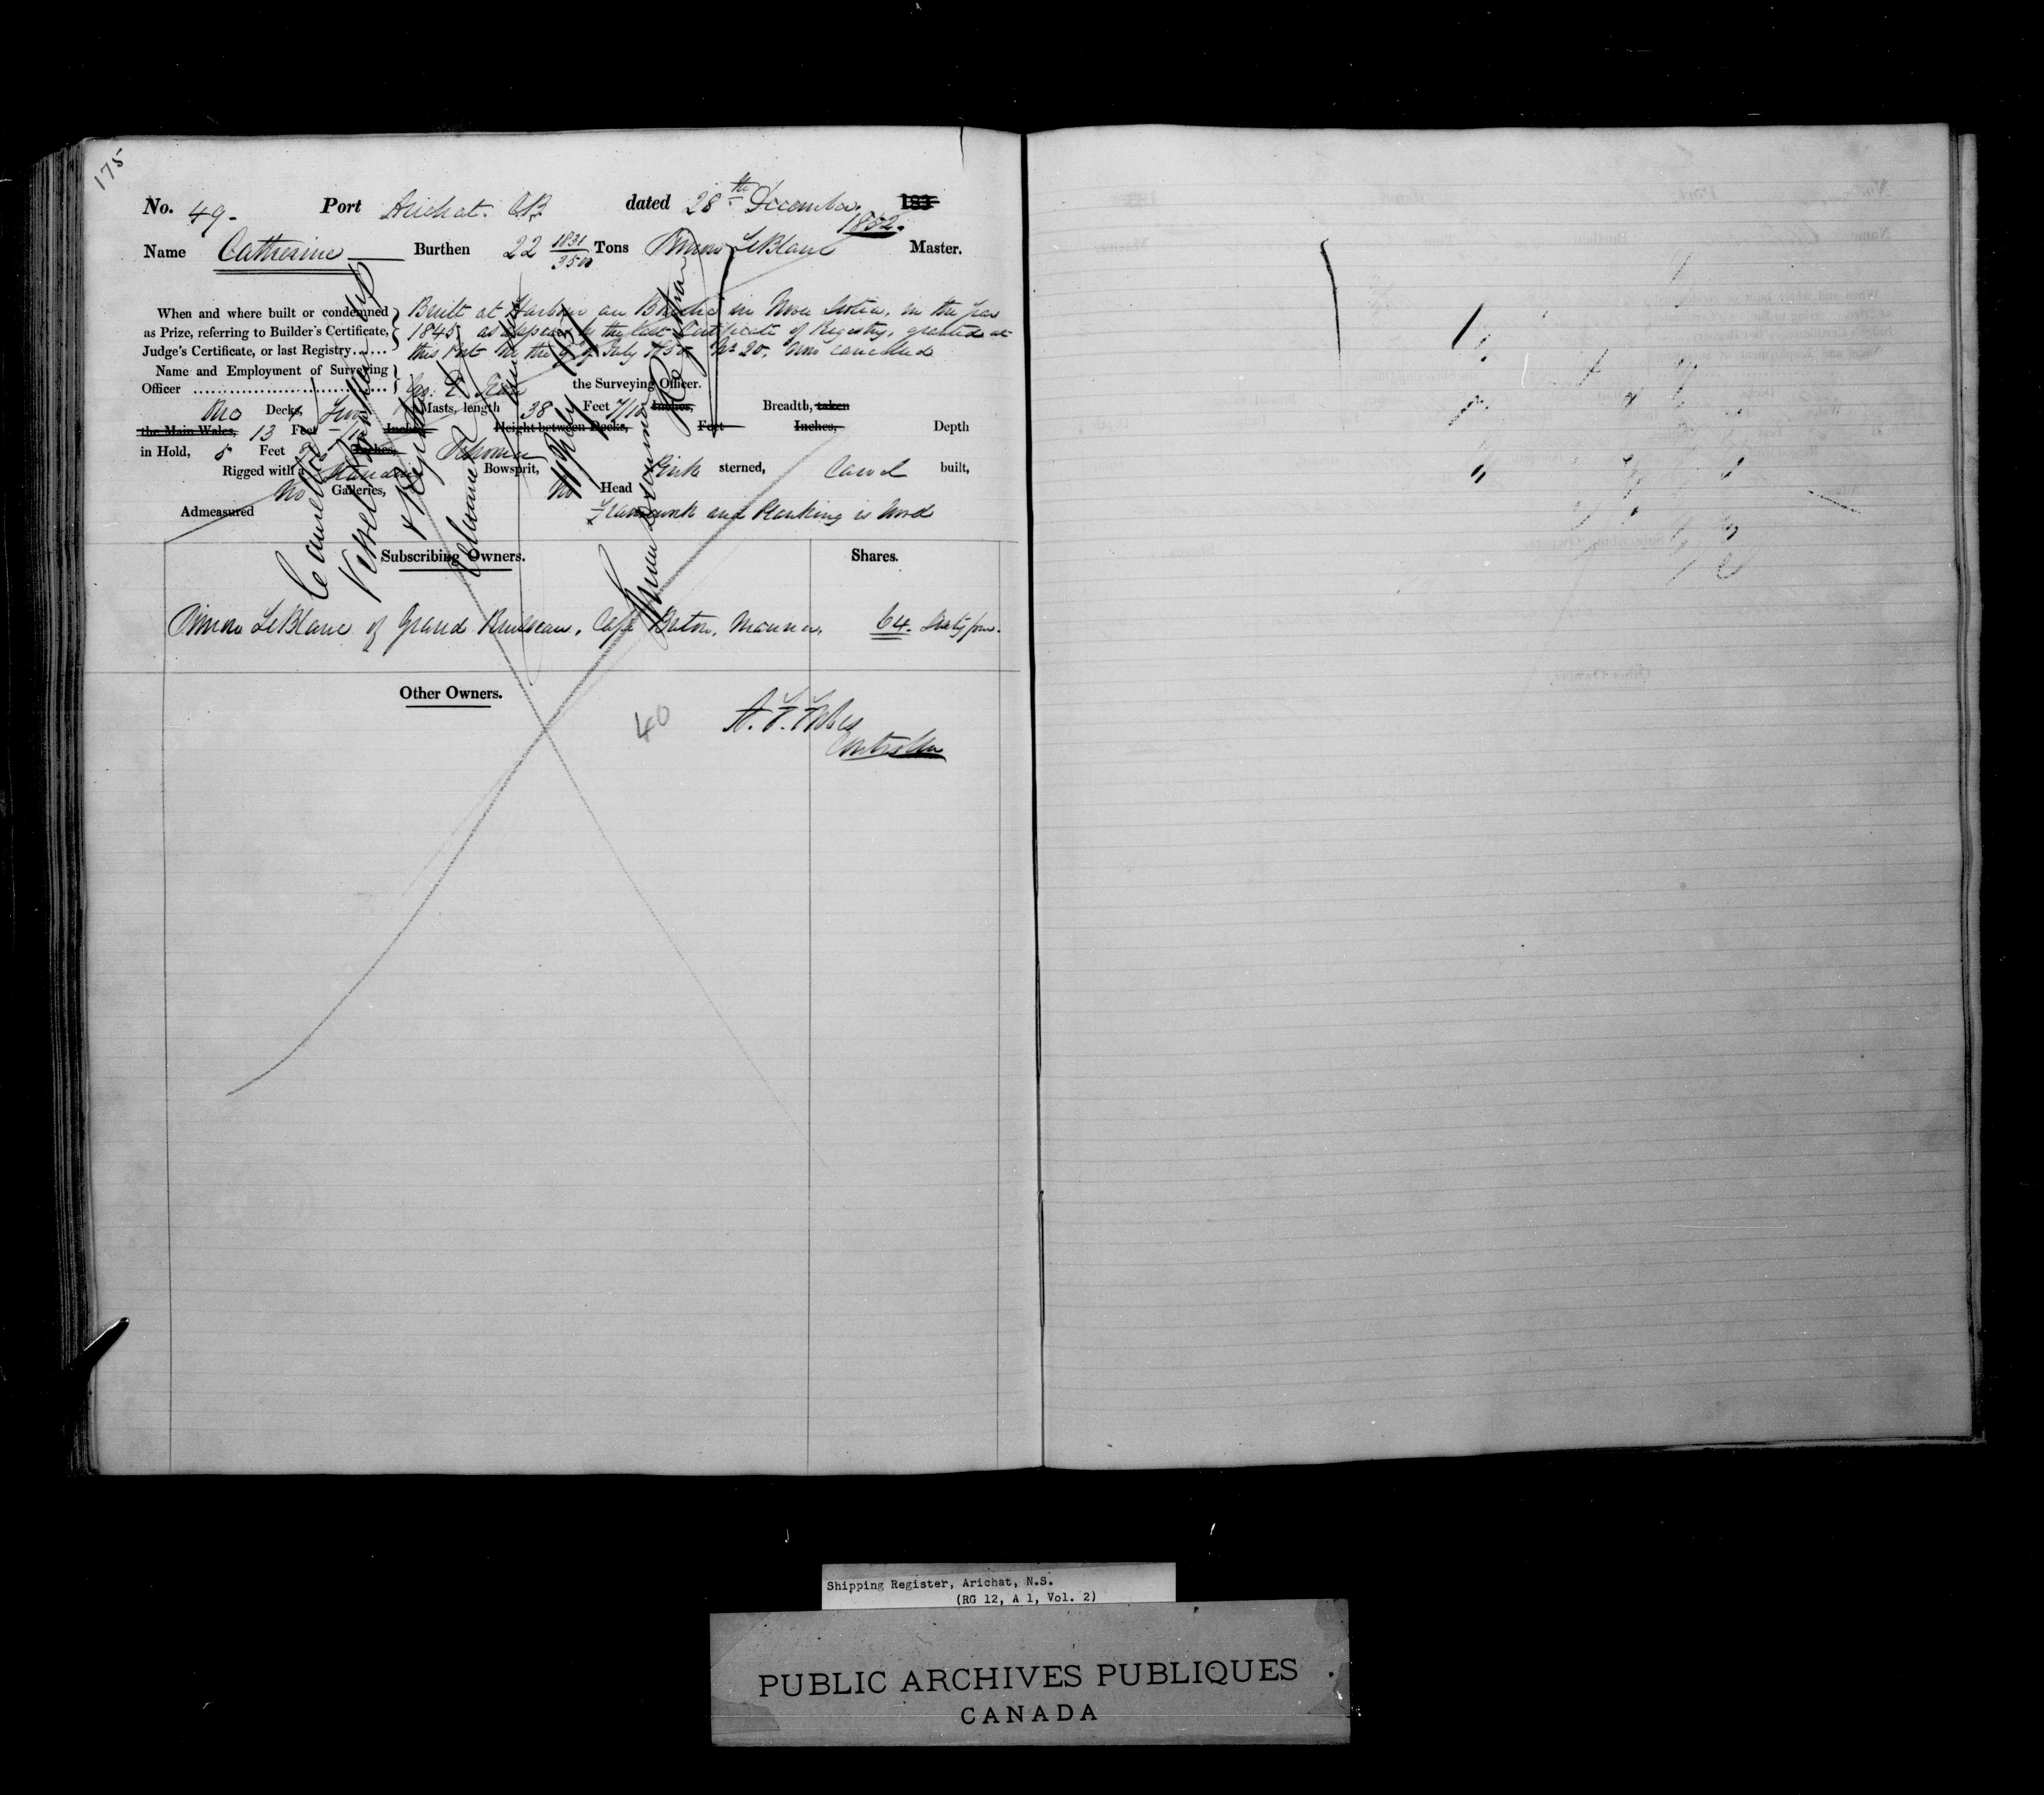 175
No. 49- Port Arichat. C.B. dated 28th December. 183
1852.
Name Catherine Burthen 22 1831/3500 Tons Simon LeBlanc Master.
When and where built or condemned as Prize, referring to Builder's Certificate, Judge's Certificate, or last Registry......
Built at Harbour au Bouche in Nova Scotia, in the year
1845, as appears by the last Certificate of Registry, granted at
this Port on the 9th July 1850 No 20, now cancelled
Name and Employment of Surveying Officer
the Surveying Officer.
No Decks, Two Masts, length 38 Feet 7/10 Inches, Breadth, taken
the Main Wales, 13 Feet Inches, Height between Decks, Feet Inches, Depth
in Hold, 5 Feet Inches, Schooner
Rigged with a Standing Bowsprit, Pink sterned, Carvel built,
No Galleries, No Head
Admeasured Framework and Planking is Wood
Cancelled
Vessel
Subscribing Owners. Shares.
Simon LeBlanc of Grand Ruisseau, Cape Breton, Mariner. 64. Sixty four.
Other Owners.
40
Controller
Shipping Register, Arichat, N.S.
(RG 12, A 1, Vol. 2)
PUBLIC ARCHIVES PUBLIQUES
CANADA